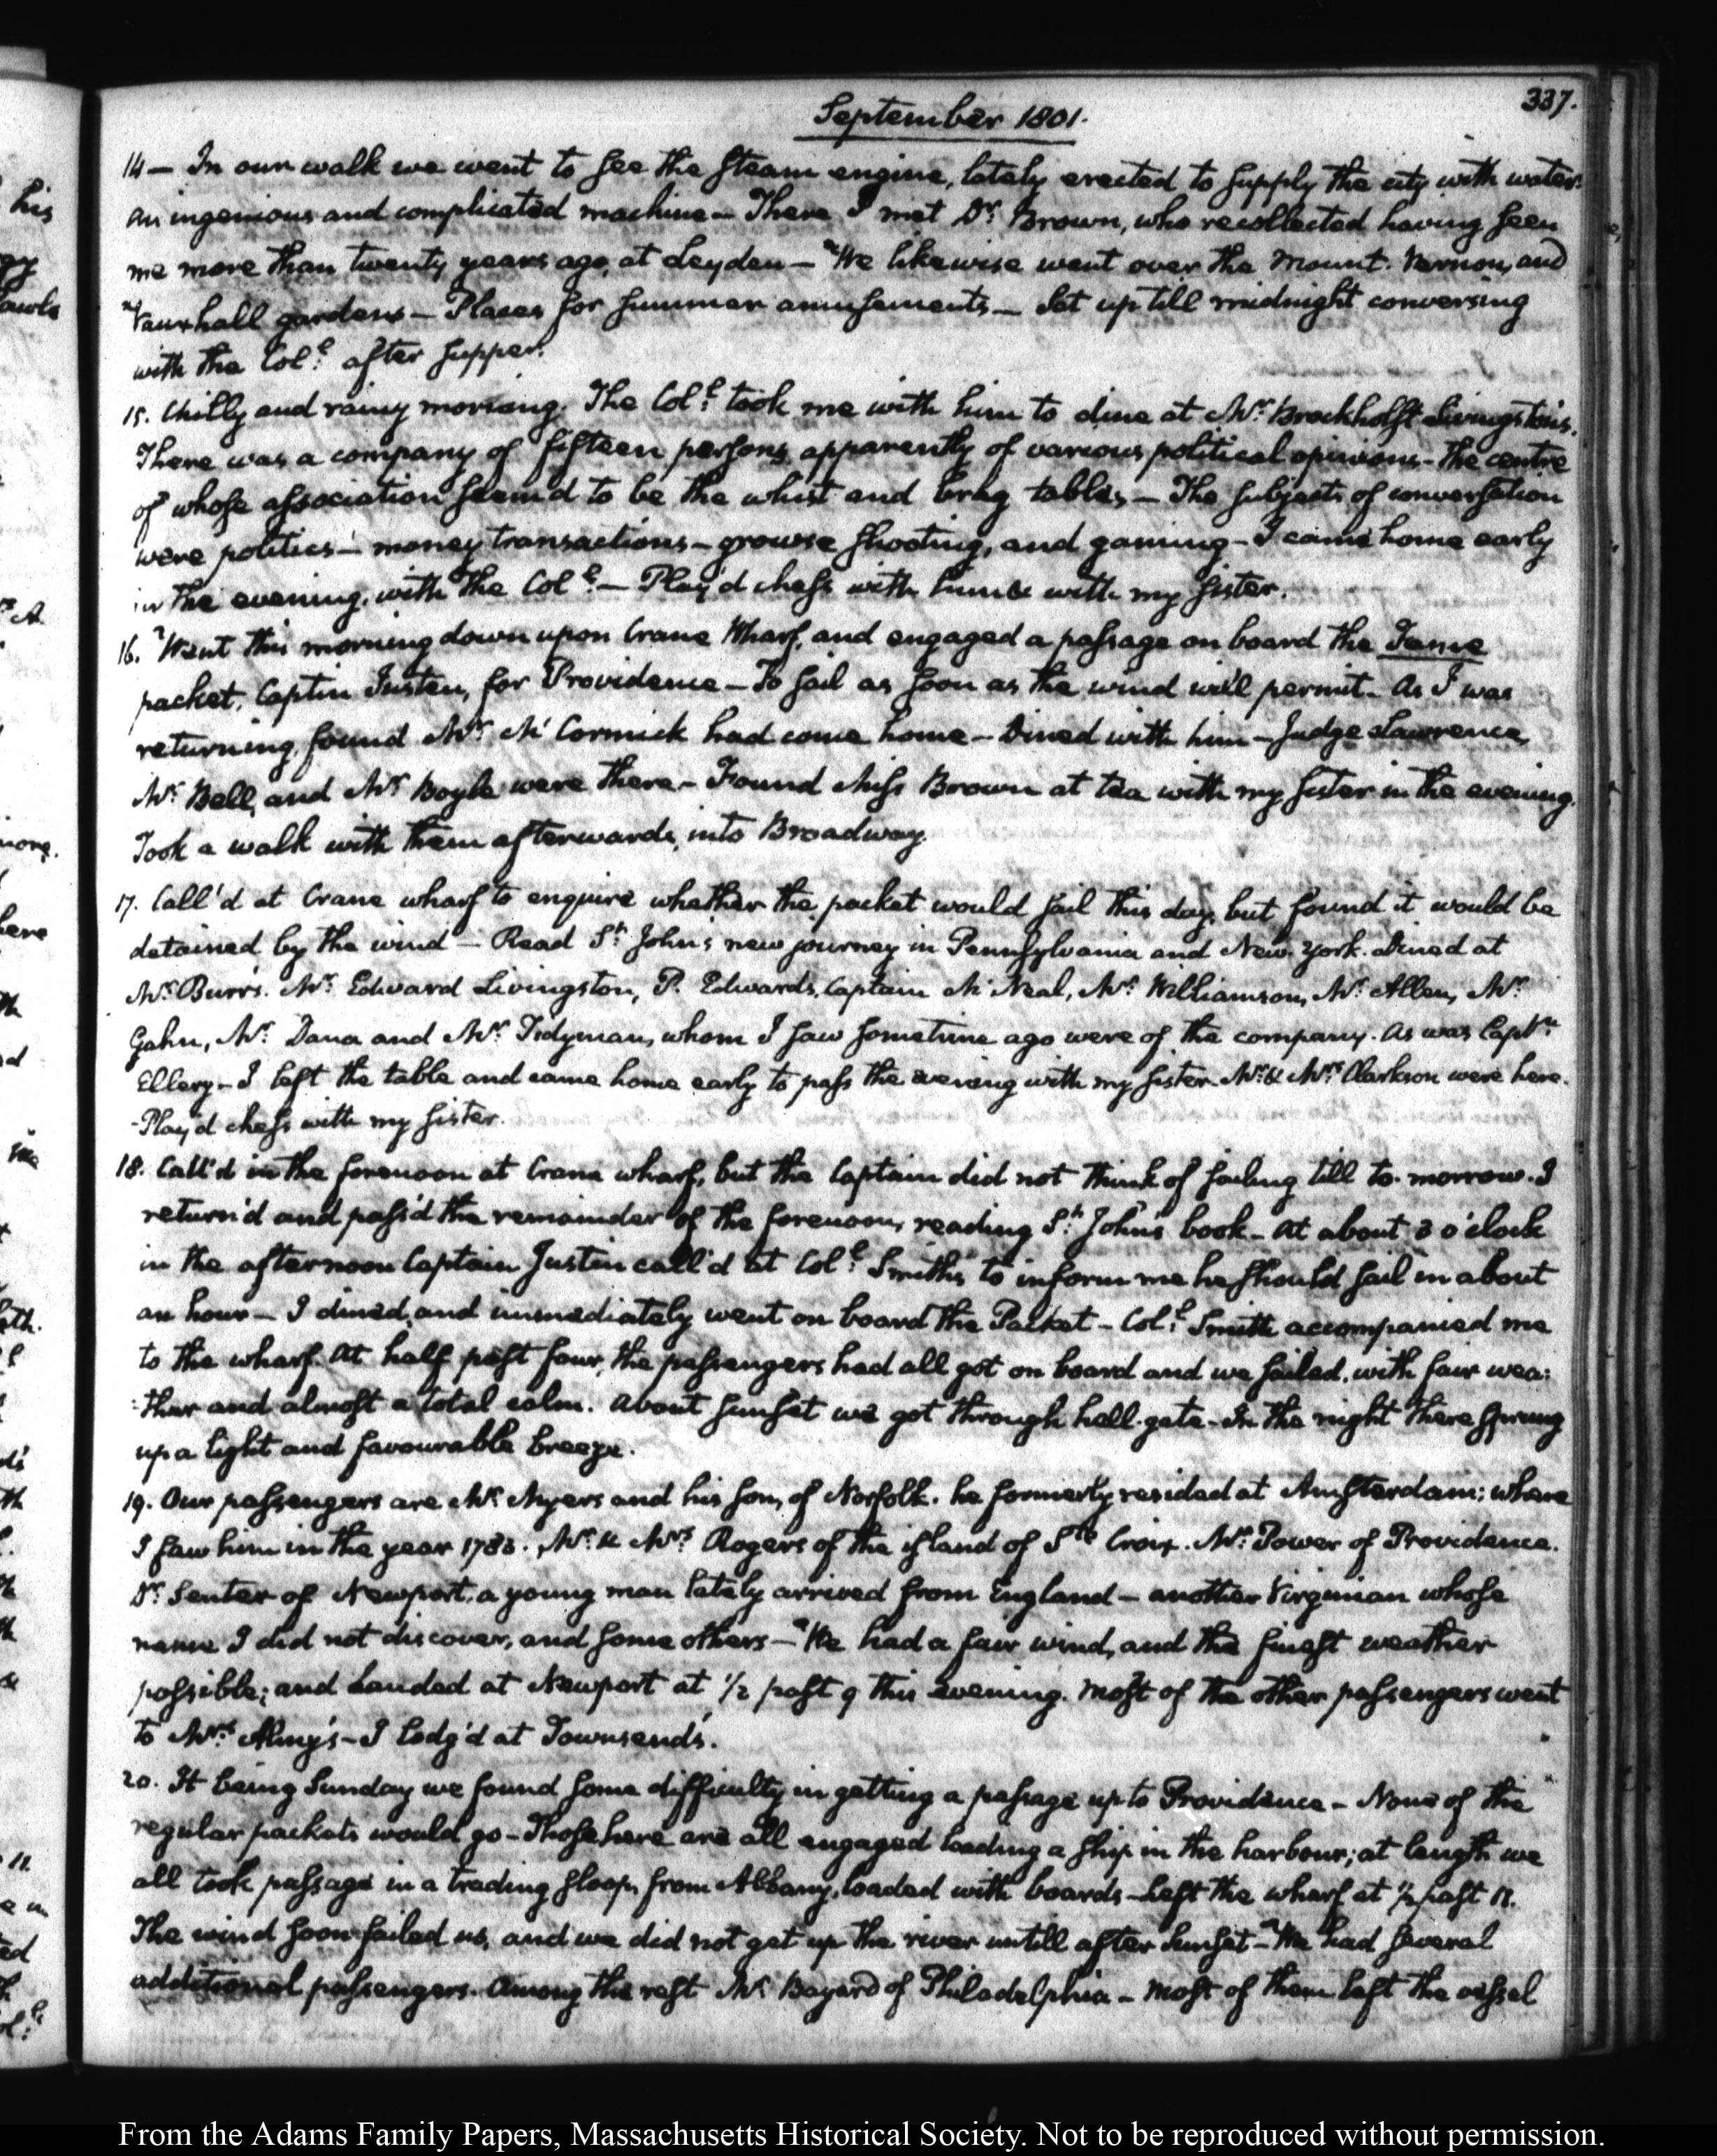 337.
September 1801.
14 — In our walk we went to see the steam engine, lately erected to supply the city with water.
An ingenious and complicated machine — There I met Dr. Brown, who recollected having seen
me more than twenty years ago, at Leyden — We likewise went over the Mount. Vernon, and
Vauxhall gardens — Places for summer amusements — Sat up till midnight conversing
with the Coll. after supper.
15. Chilly and rainy morning. The Coll. took me with him to dine at Mr. Brockholst Livingston's.
There was a company of fifteen persons, apparently of various political opinions — the centre
of whose association seem'd to be the whist and brag tables — The subjects of conversation
were politics — money transactions — growse shooting, and gaming — I came home early
in the evening, with the Coll. — Play'd chess with him & with my Sister.
16. Went this morning down upon Crane Wharf, and engaged a passage on board the Fame
packet, Captin Justen, for Providence — To sail as soon as the wind will permit — As I was
returning, found Mr. McCormick had come home — Dined with him — Judge Lawrence,
Mr. Bell, and Mr. Boyle were there — Found Miss Brown at tea with my Sister in the evening.
Took a walk with them afterwards, into Broadway.
17. Call'd at Crane wharf to enquire whether the packet would sail this day, but found it would be
detained by the wind — Read St. John's new journey in Pennsylvania and New-York. Dined at
Mr. Burr's. Mr. Edward Livingston, P. Edwards, Captain McNeal, Mr. Williamson, Mr. Allen, Mr.
Gahn, Mr. Dana and Mr. Tidyman, whom I saw sometime ago were of the company. As was Captn.
Ellery — I left the table and came home early to pass the evening with my Sister. Mr. & Mrs. Clarkson were here.
— Play'd chess with my Sister.
18. Call'd in the forenoon at Crane wharf, but the Captain did not think of sailing till to-morrow. I
return'd and pass'd the remainder of the forenoon, reading St. John's book — At about 3 o'clock
in the afternoon Captain Justin call'd at Coll. Smith's to inform me he should sail in about
an hour — I dined, and immediately went on board the Packet — Coll. Smith accompanied me
to the wharf. At half past four, the passengers had all got on board and we sailed, with fair wea:
:ther and almost a total calm. About sunset we got through hell-gate — In the night there sprung
up a light and favourable breeze.
19. Our passengers are Mr. Myers and his son, of Norfolk. he formerly resided at Amsterdam; where
I saw him in the year 1783. Mr. & Mrs. Rogers of the island of Ste. Croix. Mr. Power of Providence.
Dr. Senter of Newport, a young man lately arrived from England — another Virginian whose
name I did not discover, and some others — We had a fair wind, and the finest weather
possible; and Landed at Newport at 1/2 past 9 this evening. Most of the other passengers went
to Mrs. Almy's — I lodg'd at Townsend's.
20. It being Sunday we found some difficulty in getting a passage up to Providence — None of the
regular packets would go — Those here are all engaged loading a ship in the harbour; at length we
all took passage in a trading sloop, from Albany, loaded with boards — Left the wharf at 1/2 past 11.
The wind soon failed us, and we did not get up the river untill after sunset — We had several
additional passengers. Among the rest Mr. Bayard of Philadelphia — Most of them left the vessel
From the Adams Family Papers, Massachusetts Historical Society. Not to be reproduced without permission.